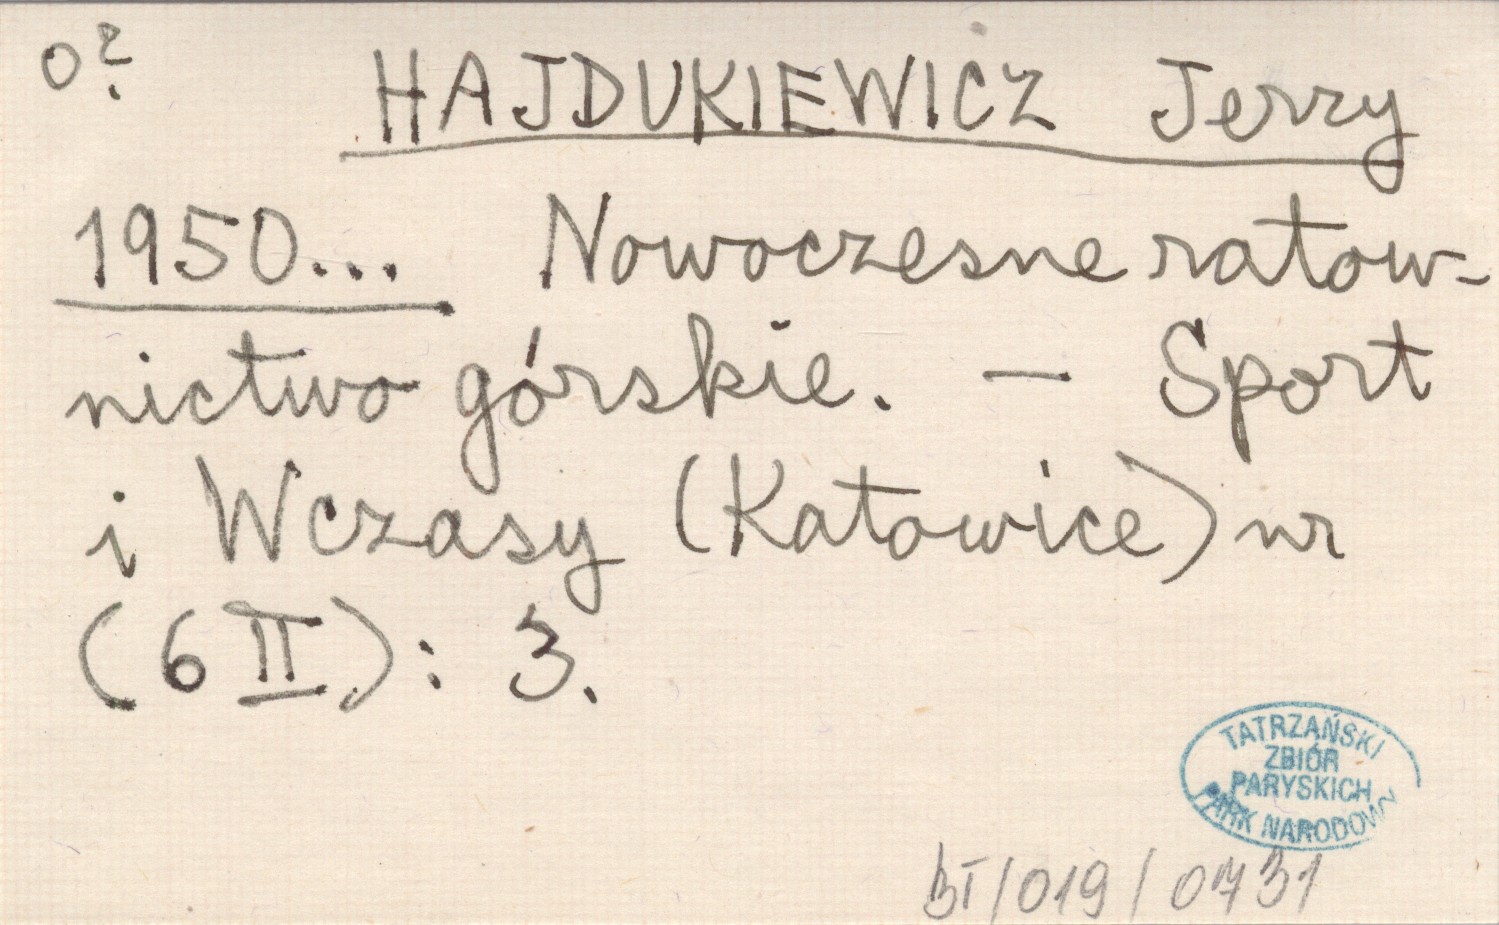 o?
HAJDUKIEWICZ Jerzy
1950... Nowoczesne ratow-
nictwo górskie. — Sport
i Wczasy (Katowice) nr
(6 II): 3.
TATRZAŃSKI
ZBIÓR
PARYSKICH
PARK NARODOWY
BT/019/0731